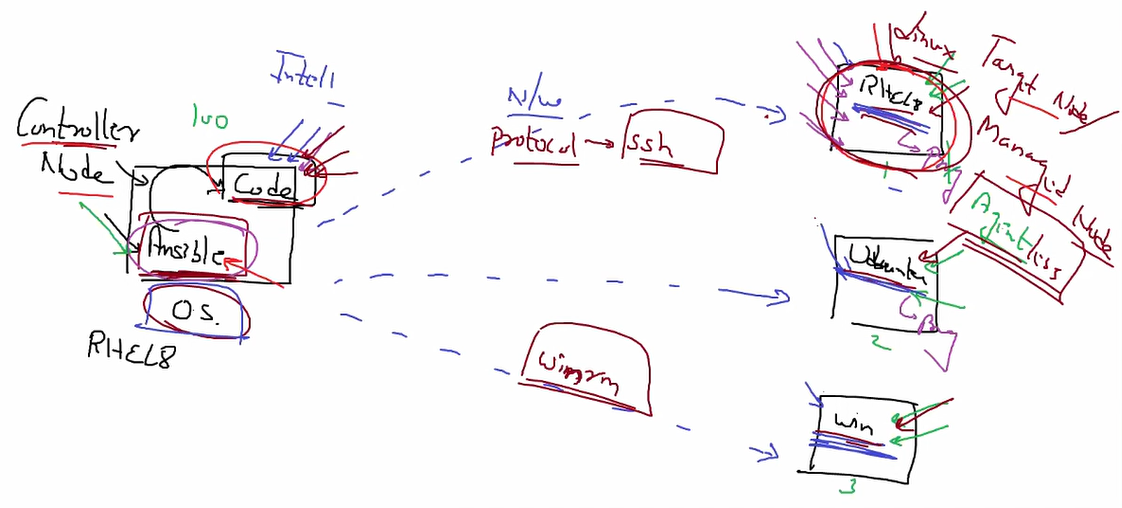 Intell
100
Controller
Node
Code
Ansible
O.S.
RHEL8
N/w
Protocol → ssh
winrm
Linux
RHEL8
1
Target Node
Managed Node
Agentless
Ubuntu
2
win
3